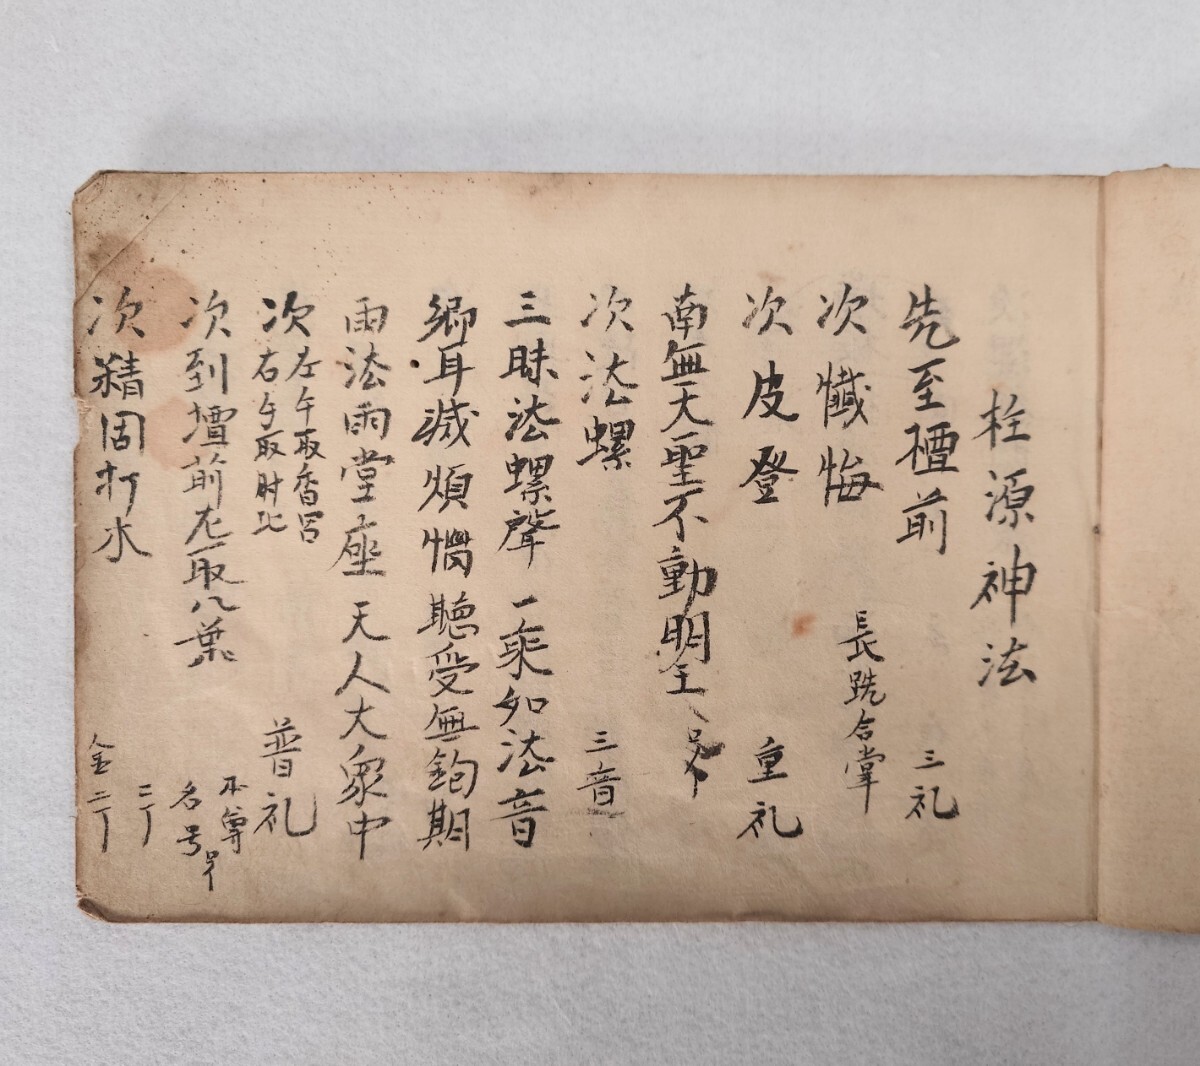 柱源神法
先至檀前 三礼
次懺悔 長跪合掌
次皮登 重礼
南無大聖不動明王
次法螺 三音
三昧法螺聲 一乘如法音
郷耳滅煩惱聽受無鈎期
雨法雨堂座 天人大衆中
次左午取香呂
右午取肘比 普礼
次到壇前左取八葉 本尊名号
次精固打水 金二丁 二丁